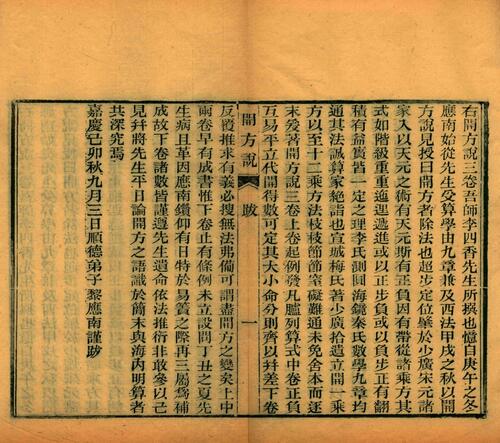 右開方說三卷吾師李四香先生所撰也憶自庚午之冬
應南始從先生受算學由九章兼及西法甲戌之秋以開
方說見授曰開方者除法也超步定位肇於少廣宋元諸
家入以天元之術有天元斯有正負因有帶從諸乘方其
式如階級重重迤邐遞進或以負步正或以正步負有翻
積有益實皆一定之理李氏測圓海鏡秦氏數學九章均
通其法誠算家絕詣也宣城梅氏著少廣拾遺立開一乘
方以至十二乘方法枝枝節節窒礙難通未免舍本而逐
末爰著開方說三卷上卷起例發凡臚列算式中卷正負
互易平立代開得數可定其大小命分則齊以幷差下卷
開方說 跋 一
反覆推求有義必搜無法弗備可謂盡開方之變矣上中
兩卷早有成書推下卷止有條例未立設問丁丑之夏先
生病且革因應南鑽仰有日特於易簀之際再三屬為補
成故下卷諸數皆謹遵先生遺命依法推衍非敢參以己
見幷將先生平日論開方之語識於簡末與海內明算者
共深究焉
嘉慶己卯秋九月三日順德弟子黎應南謹跋